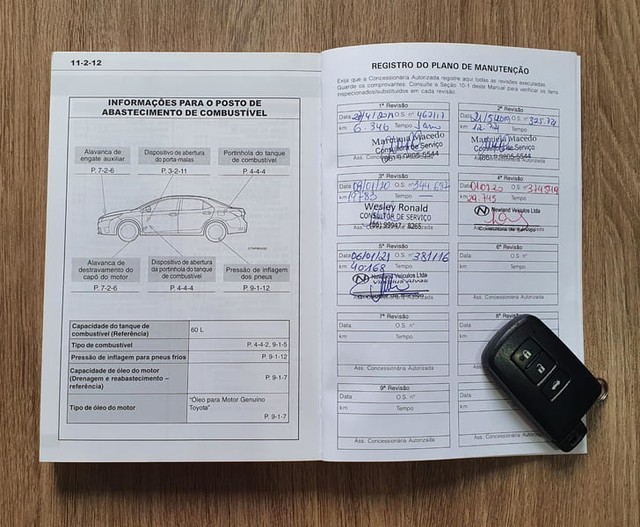 11-2-12
INFORMAÇÕES PARA O POSTO DE
ABASTECIMENTO DE COMBUSTÍVEL
Alavanca de
engate auxiliar
P. 7-2-6
Dispositivo de abertura
do porta-malas
P. 3-2-11
Portinhola do tanque
de combustível
P. 4-4-4
Alavanca de
destravamento do
capô do motor
P. 7-2-6
Dispositivo de abertura
da portinhola do tanque
de combustível
P. 4-4-4
Pressão de inflagem
dos pneus
P. 9-1-12
Capacidade do tanque de
combustível (Referência)
60 L
Tipo de combustível
P. 4-4-2, 9-1-5
Pressão de inflagem para pneus frios
P. 9-1-12
Capacidade de óleo do motor
(Drenagem e reabastecimento –
referência)
P. 9-1-7
Tipo de óleo do motor
"Óleo para Motor Genuíno
Toyota"
P. 9-1-7
REGISTRO DO PLANO DE MANUTENÇÃO
Exija que a Concessionária Autorizada registre aqui todas as revisões executadas.
Guarde os comprovantes. Consulte a Seção 10-1 deste Manual para verificar os itens
inspecionados/substituídos em cada revisão.
1ª Revisão
Data O.S. nº
km 6.346 Tempo
Mariana Macedo
Consultora de Serviço
Ass. Concessionária
2ª Revisão
Data O.S. nº
km Tempo
Macedo
Consultora de Serviço
Ass. Concessionária
3ª Revisão
Data 09/01/20 O.S. nº
km 19783 Tempo
Wesley Ronald
CONSULTOR DE SERVIÇO
4ª Revisão
Data O.S. nº 374549
km 29.745 Tempo
Newland Veículos Ltda
Consultoria de Serviço
5ª Revisão
Data 06/01/21 O.S. nº 381116
km 40168 Tempo
Newland Veículos Ltda
Consultoria de Serviço
6ª Revisão
Data O.S. nº
km Tempo
Ass. Concessionária Autorizada
7ª Revisão
Data O.S. nº
km Tempo
Ass. Concessionária Autorizada
8ª
Data
9ª Revisão
Data O.S. nº
km Tempo
Ass. Concessionária Autorizada
km Tempo
Ass. Concessionária Autorizada